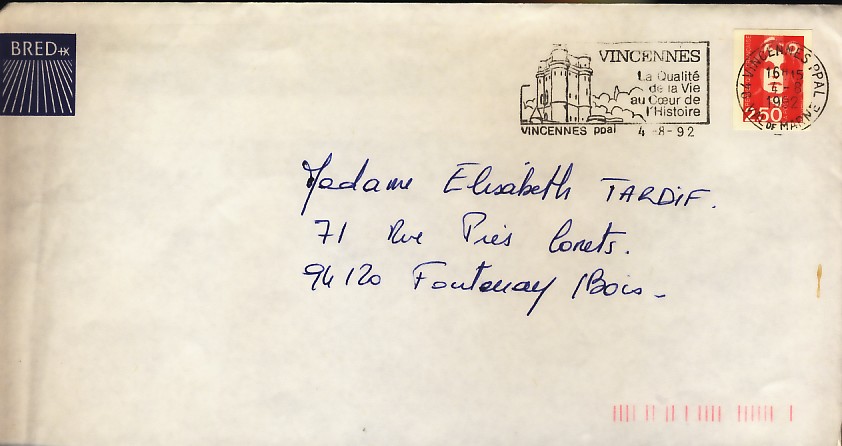 BRED
VINCENNES
La Qualité
de la Vie
au Cœur de
l'Histoire
VINCENNES ppal 4 -8-92
94 VINCENNES PPAL
16H15
4-8
1992
2,50
DE MARNE
Madame Elisabeth TARDIF.
71 Rue Prés
94120 Fontenay /Bois_